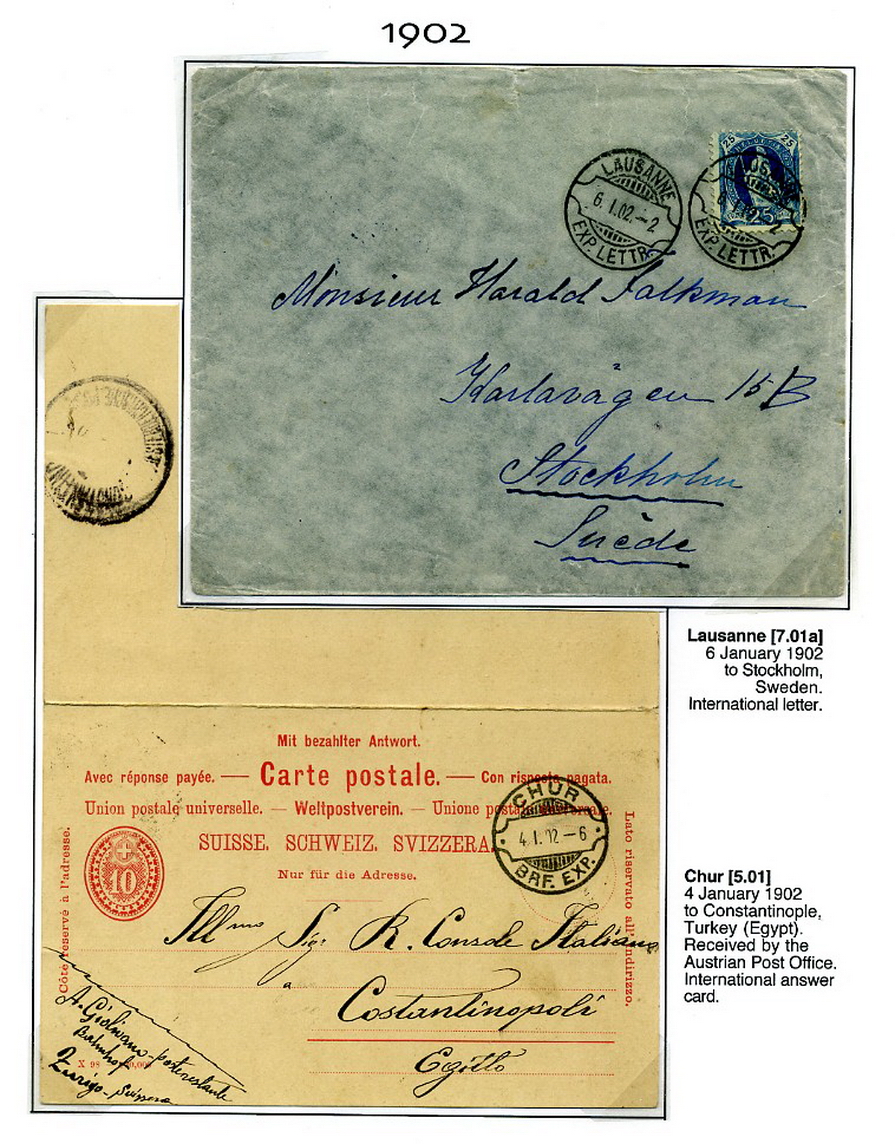 1902
25 25
LAUSANNE
6. I. 02. – 2
EXP. LETTR.
25
EXP. LETTR.
Monsieur Harald Falkman
Karlavägen 15 B
Stockholm
Suède
Lausanne [7.01a]
6 January 1902
to Stockholm,
Sweden.
International letter.
Mit bezahlter Antwort.
Avec réponse payée. — Carte postale. — Con risposta pagata.
Union postale universelle. — Weltpostverein. — Unione postale universale.
SUISSE. SCHWEIZ. SVIZZERA.
Nur für die Adresse.
CHUR
4. I. 02 – 6
BRF. EXP.
10
Côté réservé à l'adresse.
Lato riservato all'indirizzo.
Illmo Sigr R. Console Italiano
a
Costantinopoli
Egitto
A. Giolivano - posterestante
Bahnhof
Zurigo - Svizzera
X 98
Chur [5.01]
4 January 1902
to Constantinople,
Turkey (Egypt).
Received by the
Austrian Post Office.
International answer
card.